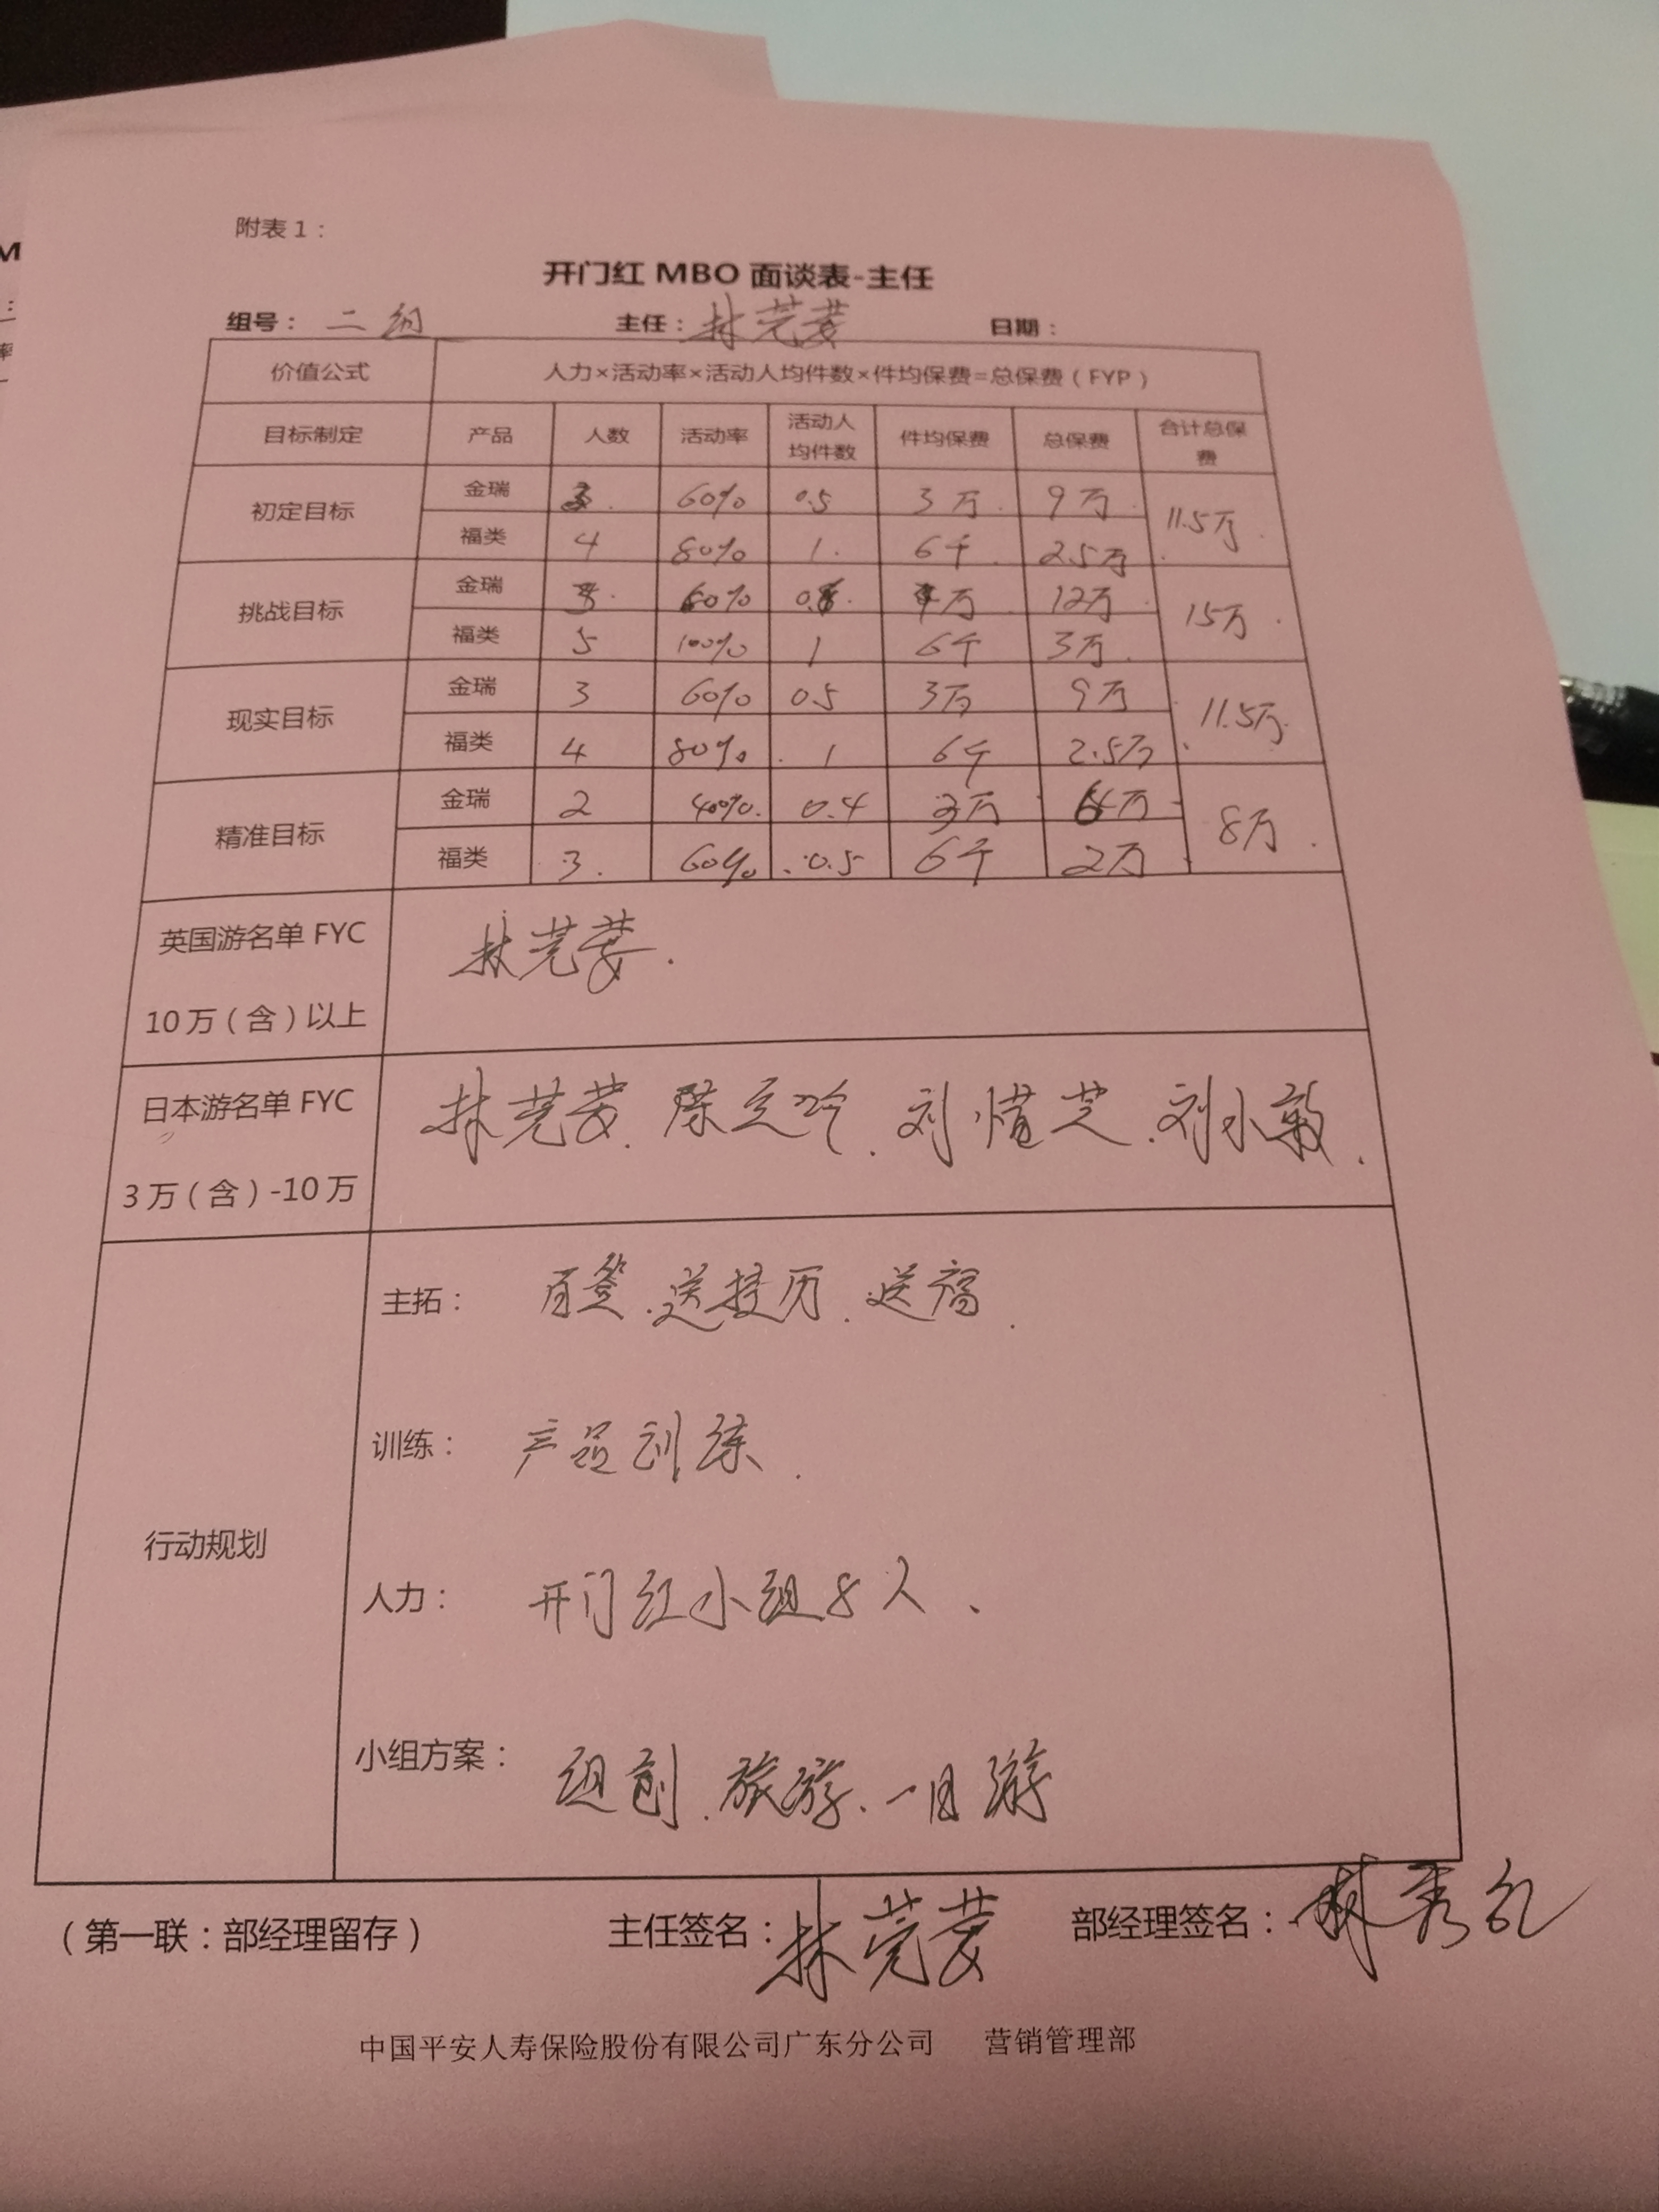 附表1：
开门红 MBO 面谈表-主任
组号： 二组 主任：林莞 日期：
价值公式 人力×活动率×活动人均件数×件均保费=总保费（FYP）
目标制定 产品 人数 活动率 活动人均件数 件均保费 总保费 合计总保费
初定目标 金瑞 3. 60% 0.5 3万. 9万. 11.5万.
福类 4 80% 1. 6千. 2.5万
挑战目标 金瑞 60% 万 12万. 15万.
福类 5 100% 1 6千 3万.
现实目标 金瑞 3 60% 0.5 3万 9万 11.5万.
福类 4 80% 1 6千 2.5万
精准目标 金瑞 2 40%. 0.4 3万 6万 8万.
福类 3. 60% 0.5 6千 2万
英国游名单 FYC
10万（含）以上
林莞
日本游名单 FYC
3万（含）-10万
林莞 陈 刘 芝、刘小敏.
行动规划
主拓： 百签、送挂历、送福.
训练： 产品训练.
人力： 开门红小组8人、
小组方案： 组创、旅游、一日游
（第一联：部经理留存） 主任签名：林莞 部经理签名：林秀
中国平安人寿保险股份有限公司广东分公司 营销管理部
M
：
率